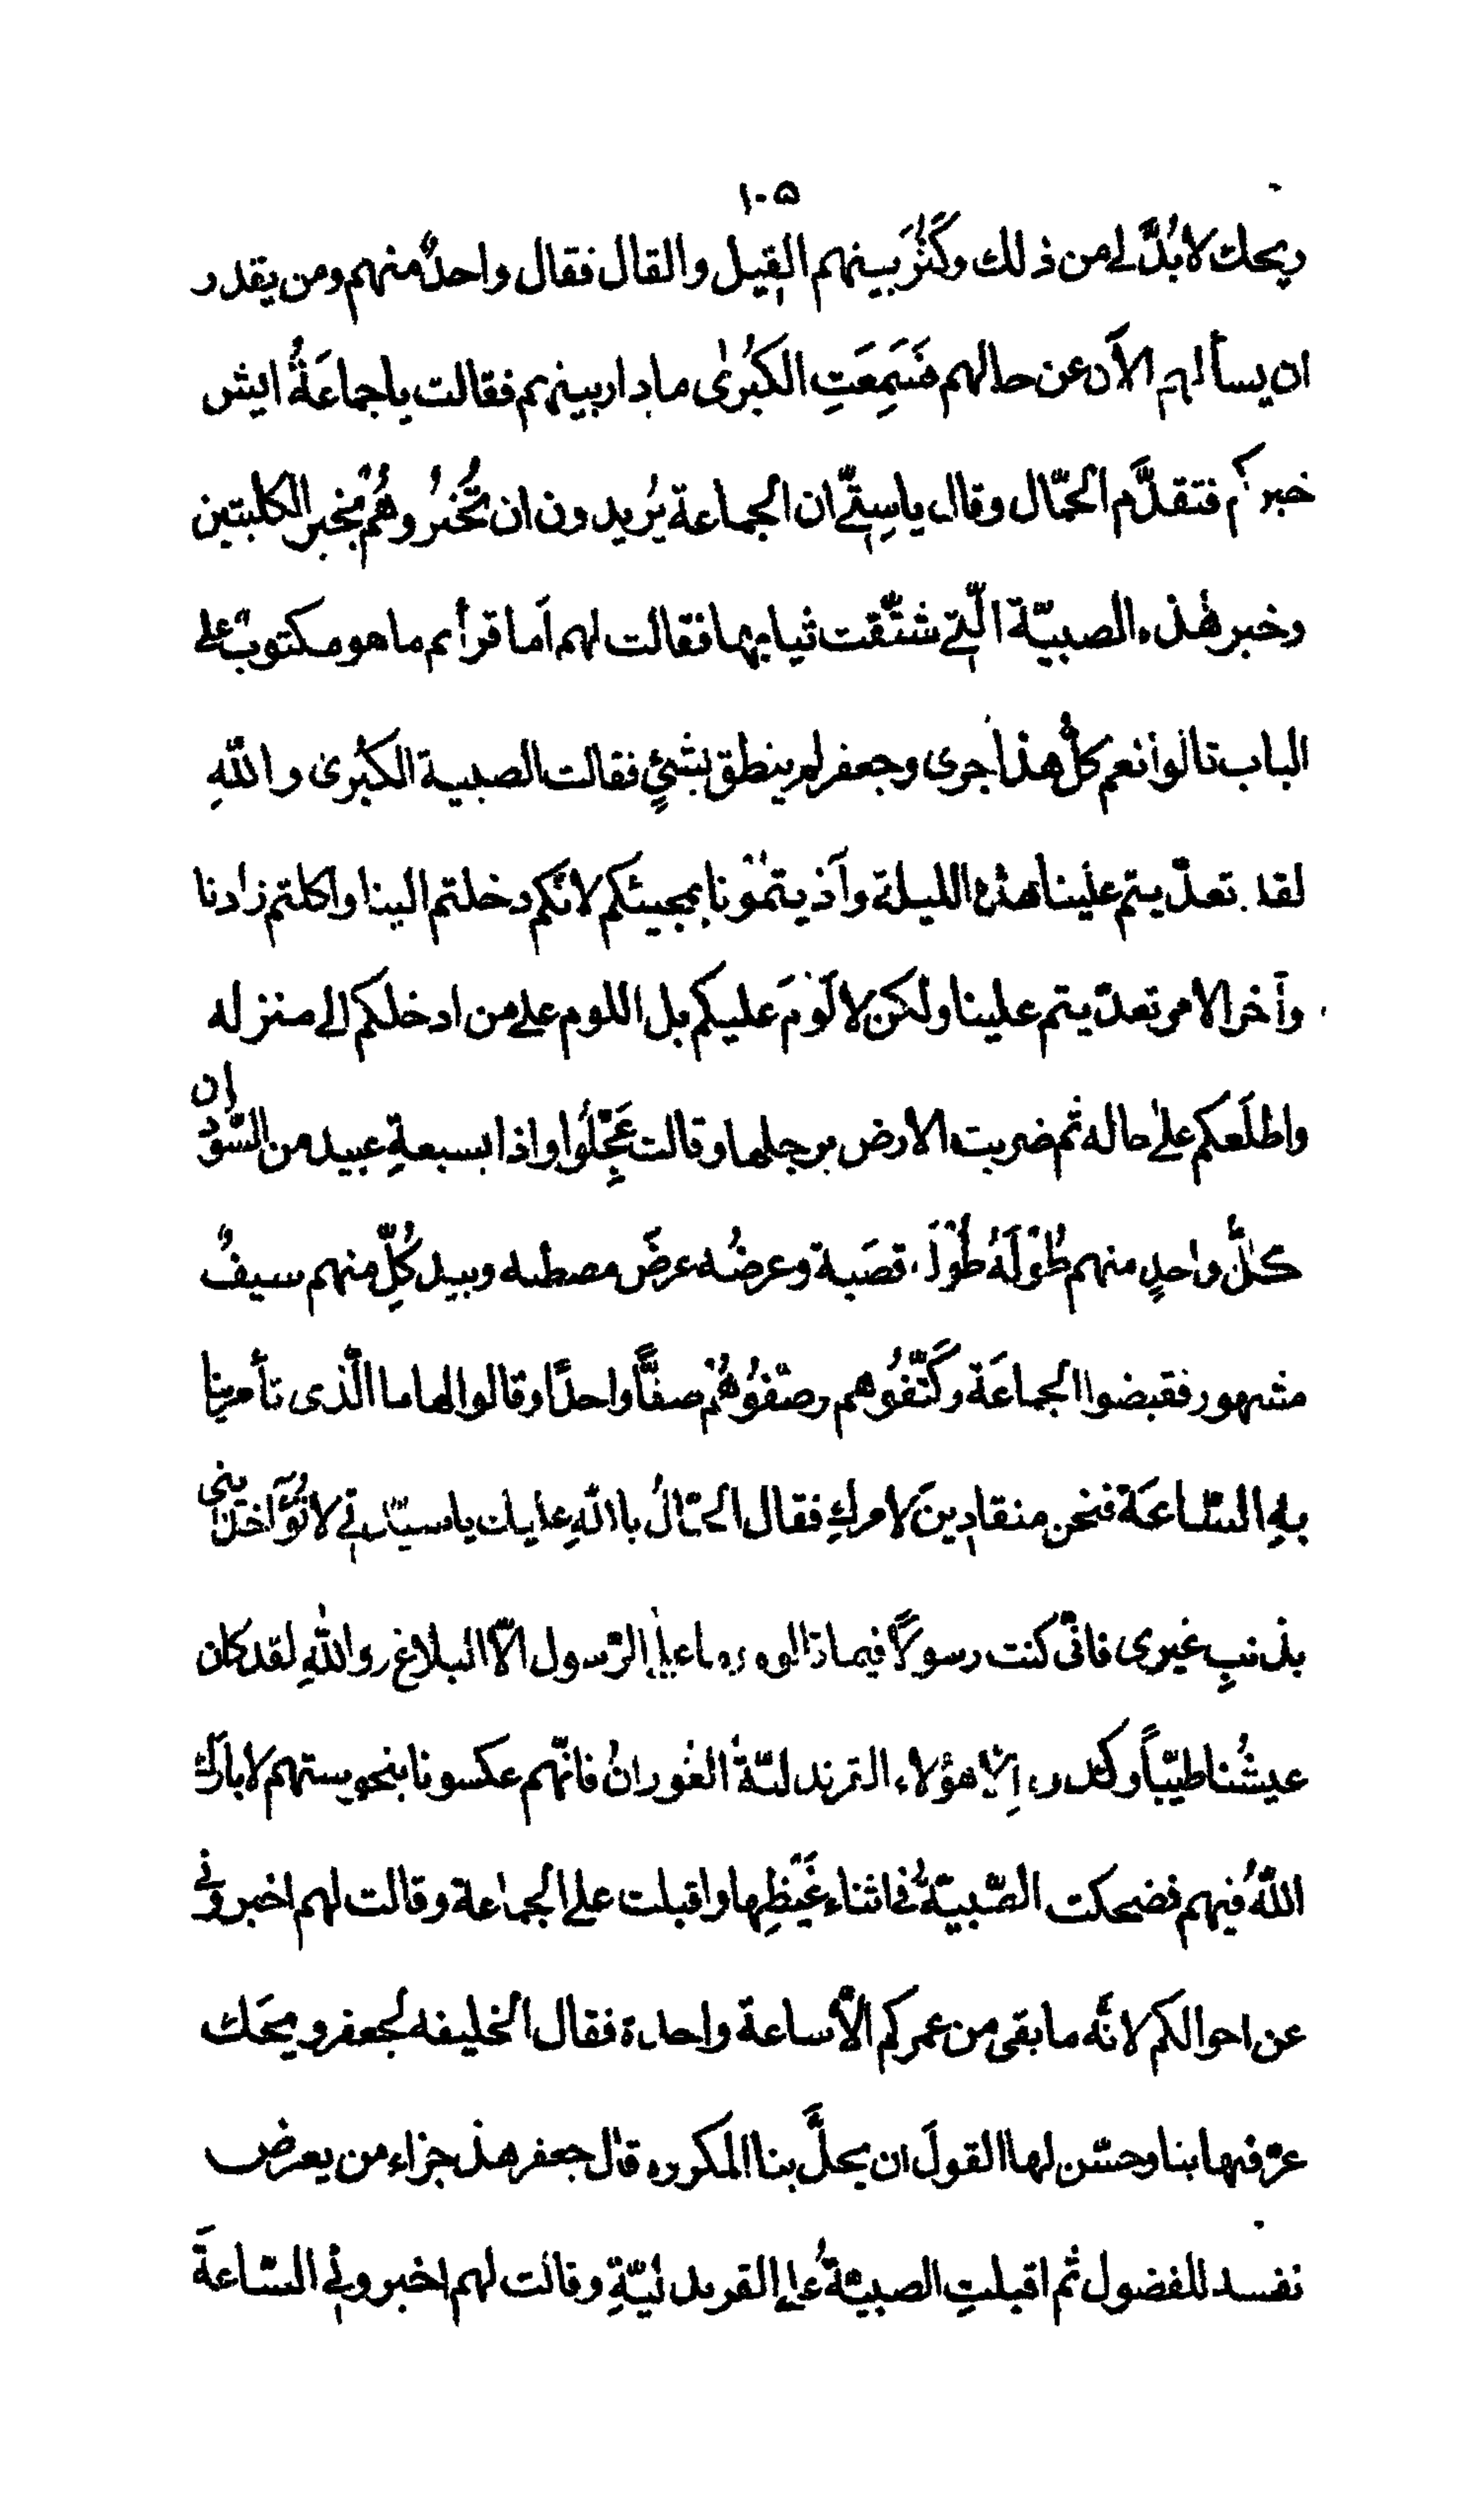 ١٠٥
ويحك لا بُدَّ لي من ذلك وكَثُرَ بينهم القِيل والقال فقال واحدٌ منهم ومن يقدر
ان يسألهم الآن عن حالهم فَسَمِعَتِ الكُبْرٰى ما دار بينهم فقالت يا جماعَةُ ايش
خبركم فتقدَّم الحمّال وقال يا سِتّي ان الجماعة يُريدون ان تُخْبرُوهُمْ بخبر الكلبتين
وخبر هٰذه الصبيّة الّتي شقّقت ثيابها فقالت لهم اَما قرأتم ما هو مكتوبٌ على
الباب قالوا نعم كلُّ هذا جرى وجعفر لم ينطق بشئٍ فقالت الصبية الكبرى واللّهِ
لقد تعدّيتم علينا هذه الليلة واَذيتمونا بمجيئكم لانّكم دخلتم الينا واكلتم زادنا
وآخر الامر تعدّيتم علينا ولكن لا لَوْمَ عليكم بل اللوم على من ادخلكم الى منزله
واطلَعكم علٰى حاله ثم ضربت الارض برجلها وقالت عَجِّلُوا واذا بسبعةِ عبيد من السُّودان
كلُّ واحدٍ منهم طُوْلَهُ طُوْلَ قصَبة وعرضُه عرضَ مصطبه وبيد كُلِّ منهم سيفٌ
مشهور فقبضوا الجماعَة وكَتَّفُوهم وصَفُّوهُمْ صفًّا واحدًا وقالوا لها ما الّذى تأمرينا
بهِ السّاعَة فنحن منقادِينَ لامركِ فقال الحمّالُ باللّهِ عليك يا سيّدتي لا تُؤَاخذيني
بذنبِ غيرى فانّى كنت رسولًا فيما قالوه وما على الرّسول الّا البلاغ واللّهِ لقد كان
عيشُنا طيّباً وكدره اِلّا هؤلاء القرندليّةُ العُوران فانّهم عكسونا بنحوستهم لا بارك
اللّهُ فيهم فضحكت الصّبيّةُ في اثناء غَيظِها واقبلت على الجماعة وقالت لهم اخبروني
عن احوالكم لانّه ما بقى من عمركم الّا ساعة واحدة فقال الخليفه لجعفر ويحَك
عرّفها بنا وحسّن لها القولَ ان يحلَّ بنا المكروه قال جعفر هذ جزاء من يعرض
نفسه للفضول ثم اقبلتِ الصبيّةُ على القرندليّةِ وقالت لهم اخبروني السّاعةَ